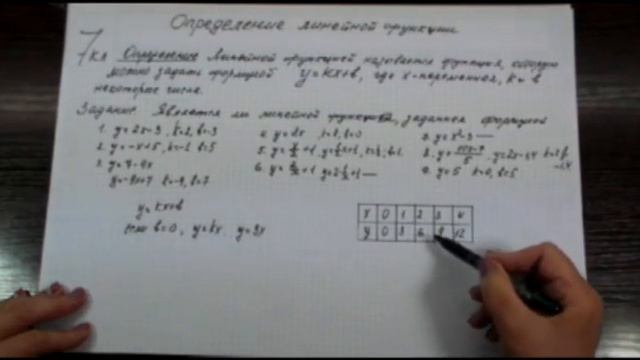 Определение линейной функции
7 кл Определение Линейной функцией называется функция, которую
можно задать формулой y=kx+b, где x-переменная, k и b
некоторые числа.
Задание: Является ли линейной функция, заданная формулой
1. y=2x-3, k=2, b=-3
2. y=-x+5, k=-1 b=5
3. y=7-9x
y=-9x+7 k=-9, b=7
4. y=8x k=8, b=0
5. y=x/2+1, y=1/2x+1,
6. y=2/x+1,
7. y=x²-3 —
8. y=
9. y=5 k=0, b=5
y=kx+b
если b=0, y=kx. y=3x
x 0 1 2 3 4
y 0 3 6 9 12